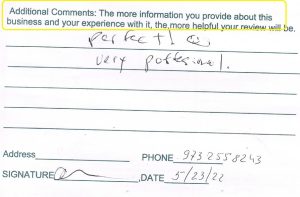 Additional Comments: The more information you provide about this
business and your experience with it, the more helpful your review will be.
very
Address
PHONE 973 255 8243
SIGNATURE
DATE 5/23/22